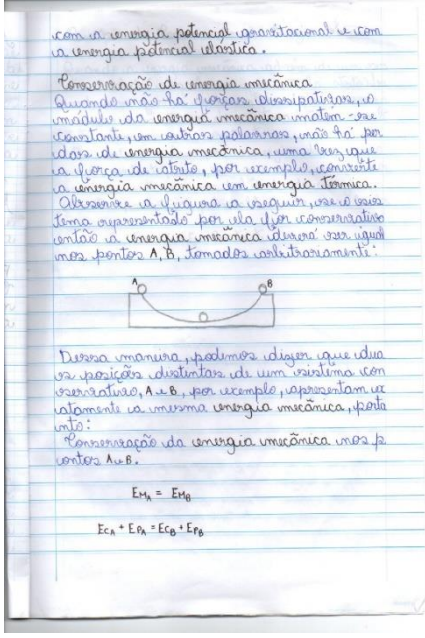 com a energia potencial gravitacional e com
a energia potencial elástica.
Conservação de energia mecânica
Quando não há forças dissipativas, o
módulo da energia mecânica matem-se
constante, em outras palavras, não há per
das de energia mecânica, uma vez que
a força de atrito, por exemplo, converte
a energia mecânica em energia térmica.
Observe a figura a seguir, se o sis
tema representado por ela for conservativo
então a energia mecânica deverá ser igual
nos pontos A, B, tomados arbitrariamente:
A B
Dessa maneira, podemos dizer que dua
s posições distintas de um sistema con
servativo, A e B, por exemplo, apresentam ex
atamente a mesma energia mecânica, porta
nto:
Conservação da energia mecânica nos p
ontos A e B.
EMA = EMB
ECA + EPA = ECB + EPB